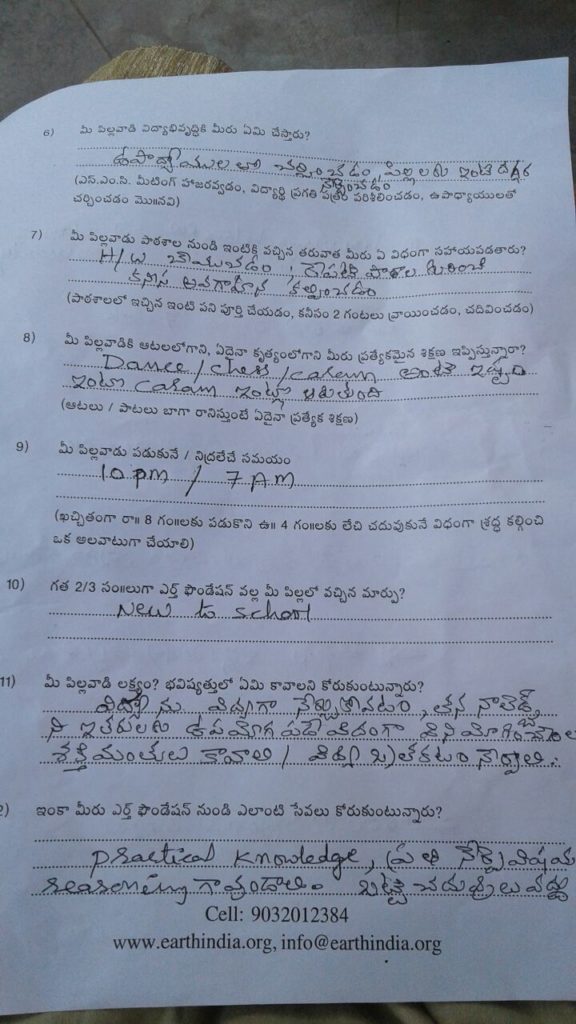 6) మీ పిల్లవాడి విద్యాభివృద్ధికి మీరు ఏమి చేస్తారు?
ఉపాధ్యాయులతో చర్చించడం, పిల్లలకు ఇంటి దగ్గర
నేర్పించడం
(ఎస్.ఎం.సి. మీటింగ్ హాజరవ్వడం, విద్యార్థి ప్రగతి పత్రం పరిశీలించడం, ఉపాధ్యాయులతో
చర్చించడం మొ॥నవి)
7) మీ పిల్లవాడు పాఠశాల నుండి ఇంటికి వచ్చిన తరువాత మీరు ఏ విధంగా సహాయపడతారు?
H/W చేయించడం, రేపటి పాఠాల గురించి
కనీస అవగాహన కల్పించడం
(పాఠశాలలో ఇచ్చిన ఇంటి పని పూర్తి చేయడం, కనీసం 2 గంటలు వ్రాయించడం, చదివించడం)
8) మీ పిల్లవాడికి ఆటలలోగాని, ఏదైనా కృత్యంలోగాని మీరు ప్రత్యేకమైన శిక్షణ ఇప్పిస్తున్నారా?
Dance / chess / carem అంటే ఇష్టం
ఇంట్లో caram ఇంట్లో ఆడుతుంది
(ఆటలు / పాటలు బాగా రానిస్తుంటే ఏదైనా ప్రత్యేక శిక్షణ)
9) మీ పిల్లవాడు పడుకునే / నిద్రలేచే సమయం
10 pm / 7 AM
(ఖచ్చితంగా రా॥ 8 గం॥లకు పడుకొని ఉ॥ 4 గం॥లకు లేచి చదువుకునే విధంగా శ్రద్ధ కల్గించి
ఒక అలవాటుగా చేయాలి)
10) గత 2/3 సం॥లుగా ఎర్త్ ఫౌండేషన్ వల్ల మీ పిల్లలో వచ్చిన మార్పు?
New to school
11) మీ పిల్లవాడి లక్ష్యం? భవిష్యత్తులో ఏమి కావాలని కోరుకుంటున్నారు?
విద్య ను విద్యగా నేర్చుకోవటం, తన నాలెడ్జ్
ని ఇతరులకు ఉపయోగ పడే విదంగా
శక్తిమంతులు కావాలి / బ్రతకటం నేర్పాలి.
2) ఇంకా మీరు ఎర్త్ ఫౌండేషన్ నుండి ఎలాంటి సేవలు కోరుకుంటున్నారు?
practical knowledge, ప్రతి నేర్పే విషయ
reasoning గా వుండాలి. బట్టి చదువులు వద్దు
Cell: 9032012384
www.earthindia.org, info@earthindia.org